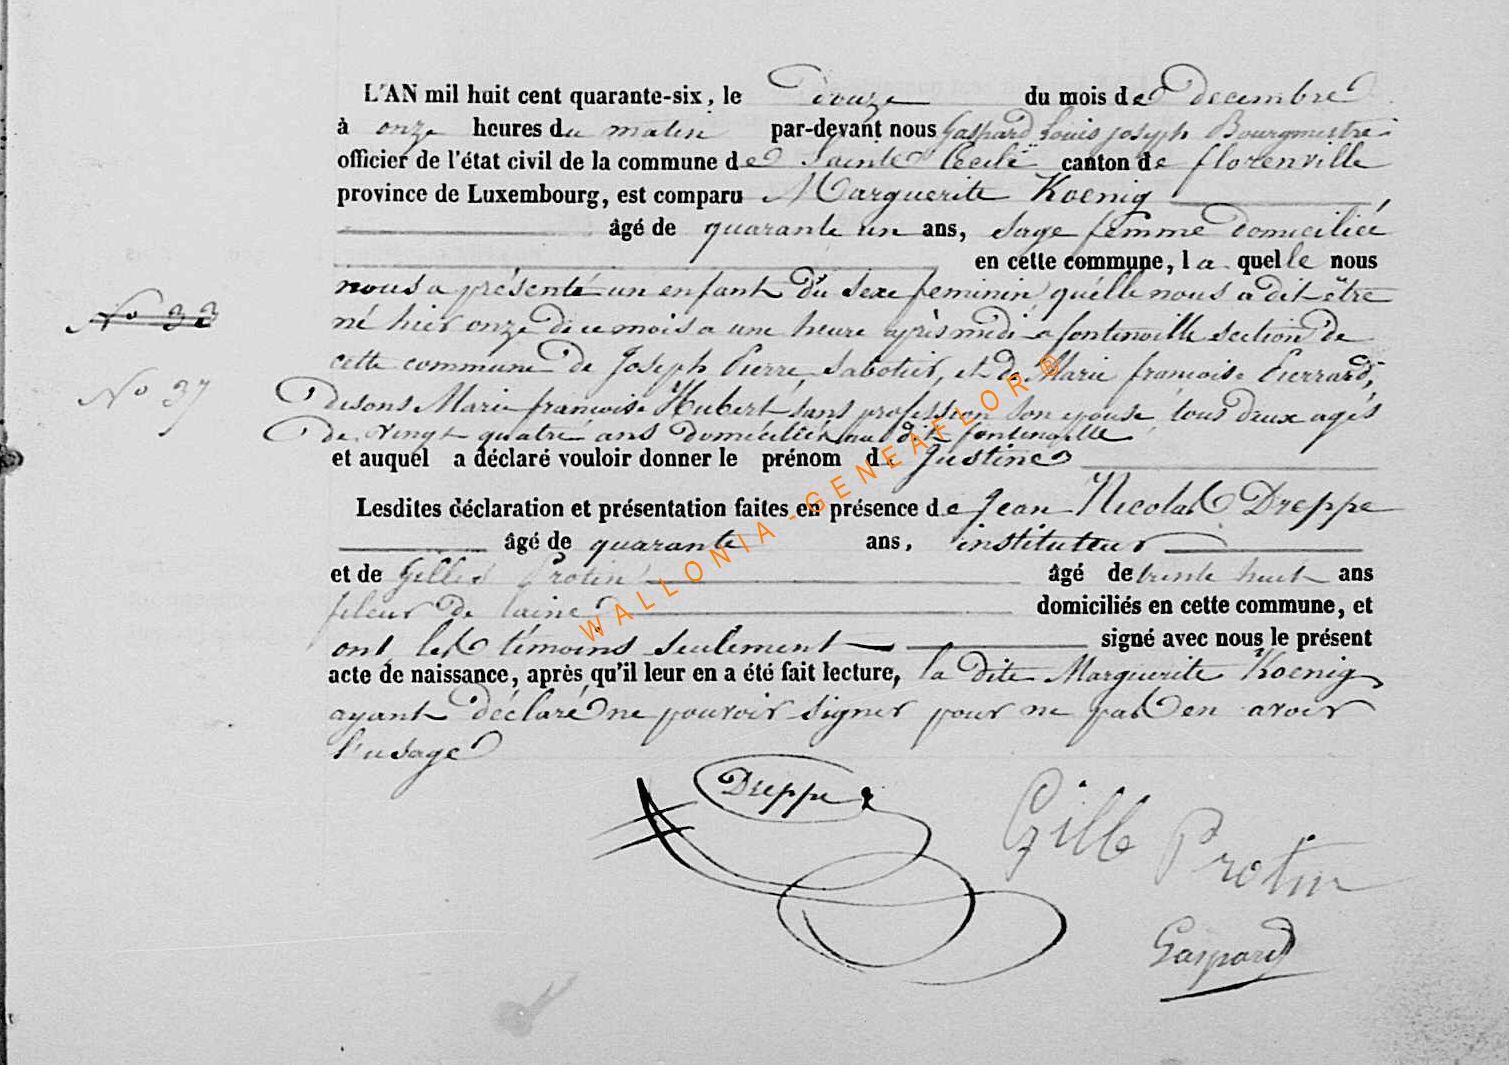 L'AN mil huit cent quarante-six, le douze du mois de decembre
à onze heures du matin par-devant nous Gaspard Louis joseph Bourgmestre
officier de l'état civil de la commune de Sainte Cecile canton de florenville
province de Luxembourg, est comparu Marguerite Koenig
âgé de quarante un ans, sage femme domiciliée
en cette commune, la quelle nous
nous a présenté un enfant du sexe feminin, quélle nous a dit être
né hier onze de ce mois a une heure après midi a fontenoille section de
No 33
cette commune de Joseph Pierre, sabotier, et de Marie francoise Pierrard,
No 37
disons Marie francoise Hubert, sans profession son epouse, tous deux agés
de vingt quatre ans domiciliés au dit fontenoille
et auquel a déclaré vouloir donner le prénom de Justine
Lesdites déclaration et présentation faites en présence de Jean Nicolas Dreppe
âgé de quarante ans, instituteur
et de Gilles Protin âgé de trente huit ans
fileur de laine domiciliés en cette commune, et
ont les témoins seulement signé avec nous le présent
acte de naissance, après qu'il leur en a été fait lecture, la dite Marguerite Koenig
ayant déclaré ne pouvoir signer pour ne pas en avoir
l'usage
Dreppe
Gille Protin
Gaspard
WALLONIA-GENEAFLOR®